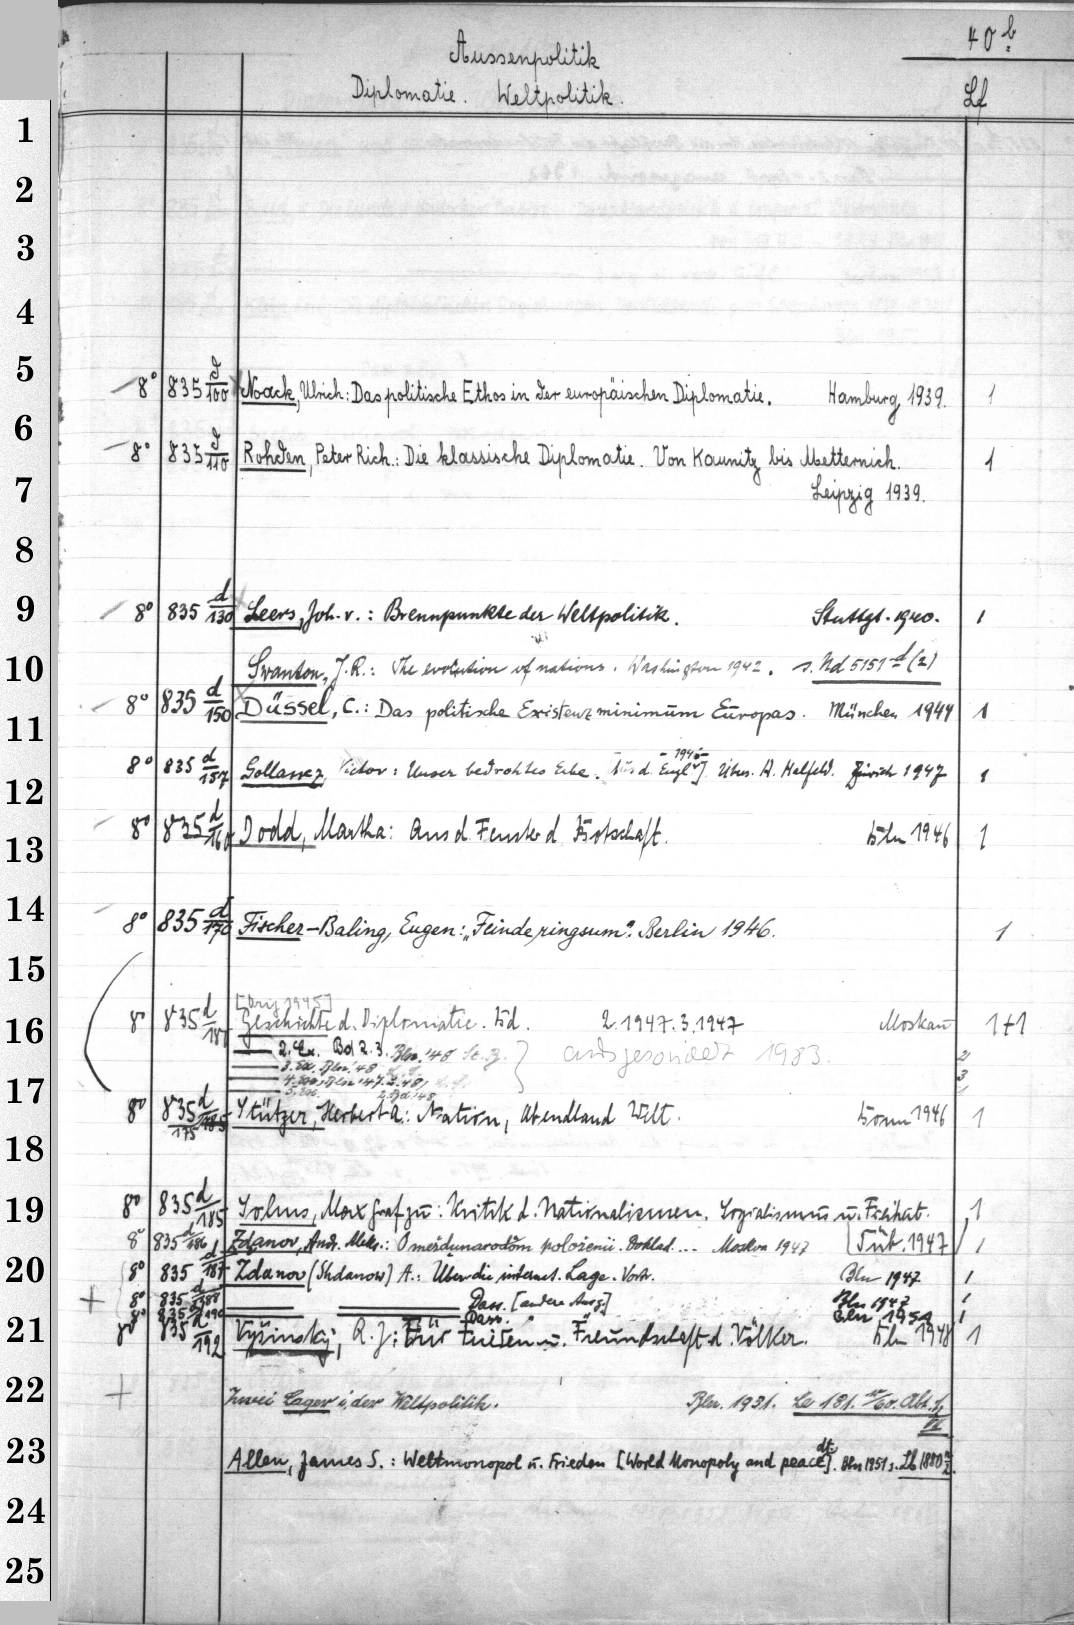 40 b
Aussenpolitik
Diplomatie. Weltpolitik.
Lf
1
2
3
4
5
8° 835 d/100 Noack, Ulrich: Das politische Ethos in der europäischen Diplomatie. Hamburg 1939. 1
6
8° 835 d/110 Rohden, Peter Rich.: Die klassische Diplomatie. Von Kaunitz bis Metternich. 1
7
Leipzig 1939.
8
9
8° 835 d/130 Leers, Joh. v.: Brennpunkte der Weltpolitik. Stuttgt. 1940. 1
10
Swanton, J.R.: The evolution of nations. Washington 1942. s. Nd 5151 d (2)
8° 835 d/150 Düssel, C.: Das politische Existenzminimum Europas. München 1944 1
11
8° 835 d/157 Gollancz, Victor: Unser bedrohtes Erbe. [Aus d. Engl.] Übers. A. Helfeld. Zürich 1947 1
12
8° 835 d/160 Dodd, Martha: Aus d. Fenster d. Botschaft. Bln 1946 1
13
14
8° 835 d/170 Fischer-Baling, Eugen: „Feinde ringsum". Berlin 1946. 1
15
[Orig 1945]
16
8° 835 d/180 Geschichte d. Diplomatie. Bd. 2.1947. 3.1947 Moskau 1+1
2. Ex. Bd 2.3. Bln. '48
ausgesondert 1983.
3. Ex. Bln. '48
17
8° 835 d/175 Stützer, Herbert A.: Nation, Abendland Welt. Bonn 1946 1
18
19
8° 835 d/185 Solms, Max Graf zu: Kritik d. Nationalismen, Sozialismus u. Freiheit. 1
8° 835 d/186 Ždanov, Andr. Aleks.: O meždunarodnom položenii. Doklad... Moskva 1947 1
Tüb. 1947
20
8° 835 d/187 Ždanov (Shdanow) A.: Über die internat. Lage. Vortr. Bln 1947 1
8° 835 d/188 Dass. [andere Ausg.] Bln 1947 1
8° 835 d/190 Dass. Bln 1951 1
21
8° 835 d/192 Vyšinskij, A. J.: Für Frieden u. Freundschaft d. Völker. Bln 1948 1
22
Zwei Lager i. der Weltpolitik. Bln. 1931.
23
Allen, James S.: Weltmonopol u. Frieden [World Monopoly and peace dt.]. Bln 1951 s.
24
25